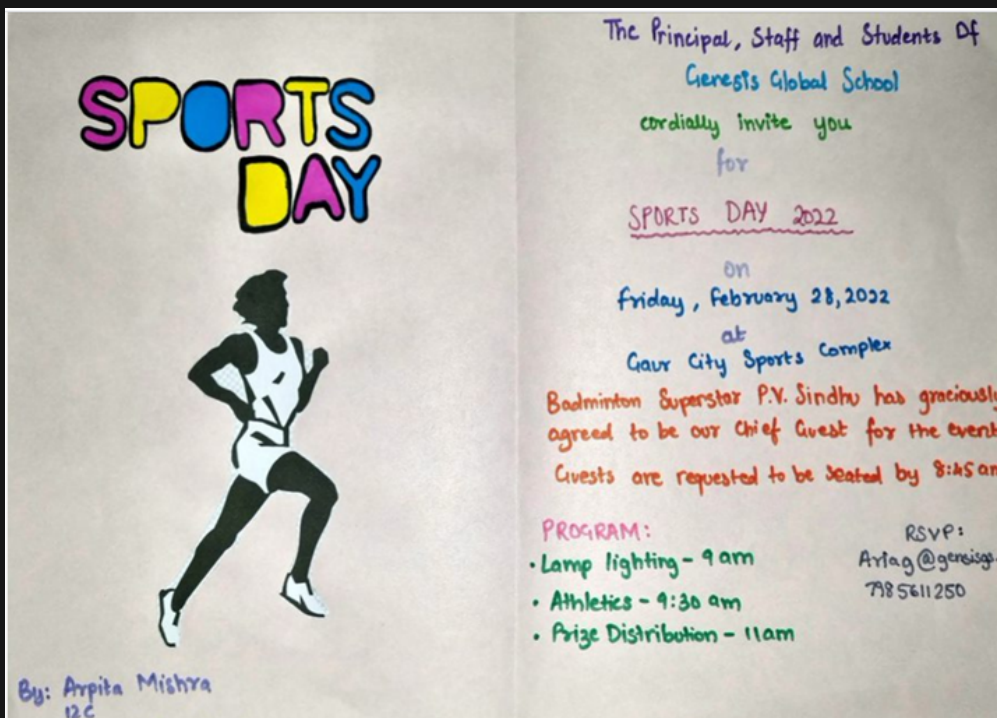 SPORTS
DAY
By: Arpita Mishra
12C
The Principal, Staff and Students Of
Genesis Global School
cordially invite you
for
SPORTS DAY 2022
on
Friday, February 28, 2022
at
Gaur City Sports Complex
Badminton Superstar P.V. Sindhu has graciously
agreed to be our Chief Guest for the event
Guests are requested to be seated by 8:45 am
PROGRAM:
• Lamp lighting - 9 am
• Athletics - 9:30 am
• Prize Distribution - 11am
RSVP:
7985611250